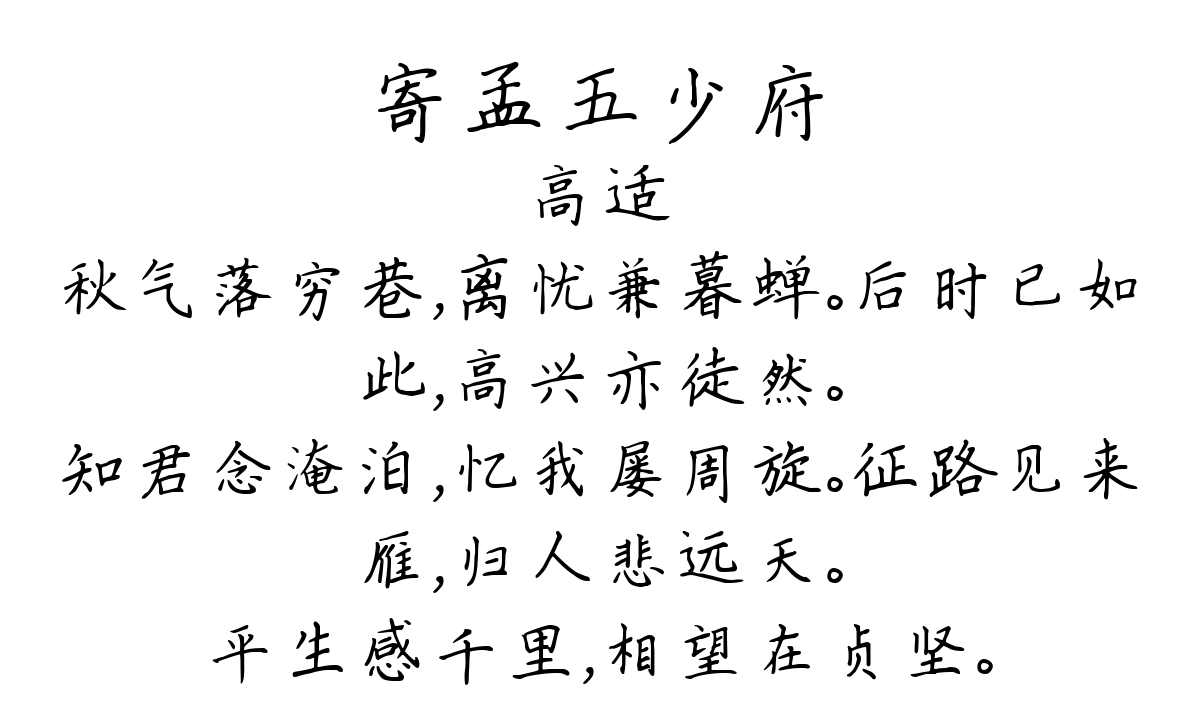 寄孟五少府
高适
秋气落穷巷,离忧兼暮蝉。后时已如
此,高兴亦徒然。
知君念淹泊,忆我屡周旋。征路见来
雁,归人悲远天。
平生感千里,相望在贞坚。